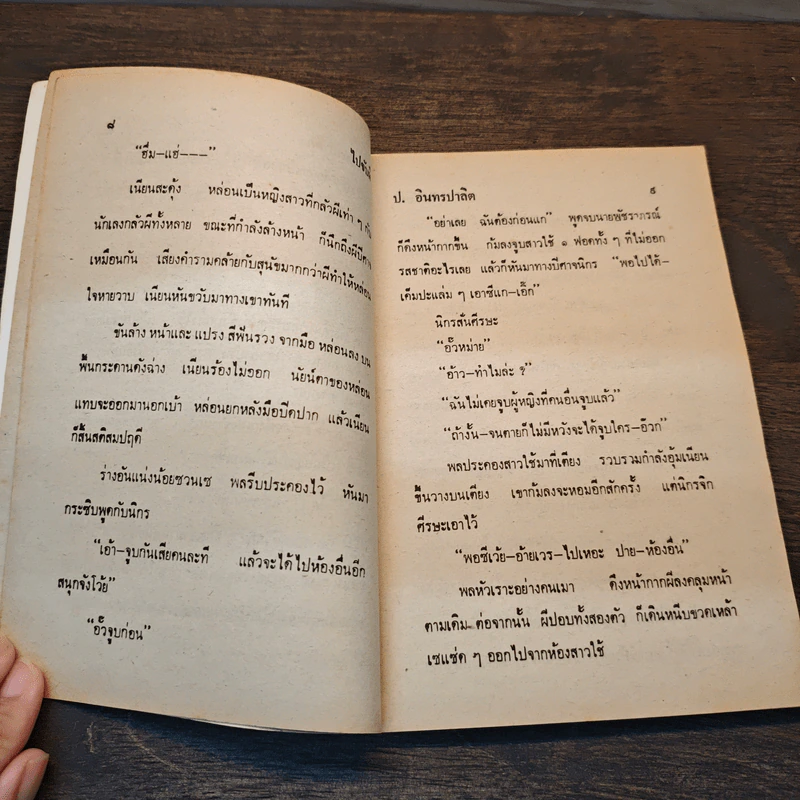 ๘
"ฮึ่ม-แฮ่---"
เนียนสะดุ้ง หล่อนเป็นหญิงสาวที่กลัวผีเท่า ๆ กับ
นักเลงกลัวผีทั้งหลาย ขณะที่กำลังล้างหน้า ก็นึกถึงผีปีศาจ
เหมือนกัน เสียงคำรามคล้ายกับสุนัขมากกว่าผีทำให้หล่อน
ใจหายวาบ เนียนหันขวับมาทางเขาทันที
ขันล้างหน้าและแปรงสีฟันร่วงจากมือหล่อนลงบน
พื้นกระดานดังฉ่าง เนียนร้องไม่ออก นัยน์ตาของหล่อน
แทบจะออกมานอกเบ้า หล่อนยกหลังมือปิดปาก แล้วเนียน
ก็สิ้นสติสมปฤดี
ร่างอันแน่งน้อยซวนเซ พลรีบประคองไว้ หันมา
กระซิบพูดกับนิกร
"เอ้า-จูบกันเสียคนละที แล้วจะได้ไปห้องอื่นอีก
สนุกจังโว้ย"
"อั๊วจูบก่อน"
ป. อินทรปาลิต ๙
"อย่าเลย ฉันต้องก่อนแก" พูดจบนายพัชราภรณ์
ก็ดึงหน้ากากขึ้น ก้มลงจูบสาวใช้ ๑ ฟอดทั้ง ๆ ที่ไม่ออก
รสชาติอะไรเลย แล้วก็หันมาทางปีศาจนิกร "พอไปได้-
เค็มปะแล่ม ๆ เอาซีแก-เอิ๊ก"
นิกรสั่นศีรษะ
"อั๊วหม่าย"
"อ้าว-ทำไมล่ะ ?"
"ฉันไม่เคยจูบผู้หญิงที่คนอื่นจูบแล้ว"
"ถ้างั้น-จนตายก็ไม่มีหวังจะได้จูบใคร-อ๊วก"
พลประคองสาวใช้มาที่เตียง รวบรวมกำลังอุ้มเนียน
ขึ้นวางบนเตียง เขาก้มลงจะหอมอีกสักครั้ง แต่นิกรจิก
ศีรษะเอาไว้
"พอซีเว้ย-อ้ายเวร-ไปเหอะ ปาย-ห้องอื่น"
พลหัวเราะอย่างคนเมา ดึงหน้ากากผีลงคลุมหน้า
ตามเดิม ต่อจากนั้น ผีปอบทั้งสองตัว ก็เดินหนีบขวดเหล้า
เซแซ่ด ๆ ออกไปจากห้องสาวใช้